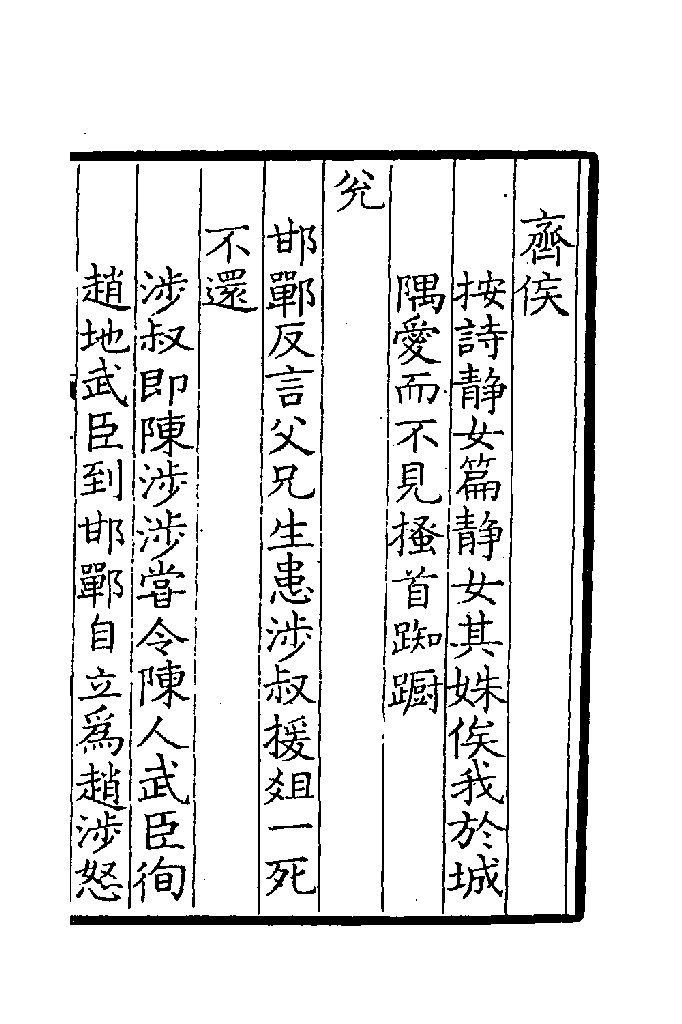 齊俟
按詩静女篇静女其姝俟我於城
隅愛而不見搔首踟蹰
兊
邯鄲反言父兄生患涉叔援俎一死
不還
涉叔即陳涉涉嘗令陳人武臣徇
趙地武臣到邯鄲自立爲趙涉怒